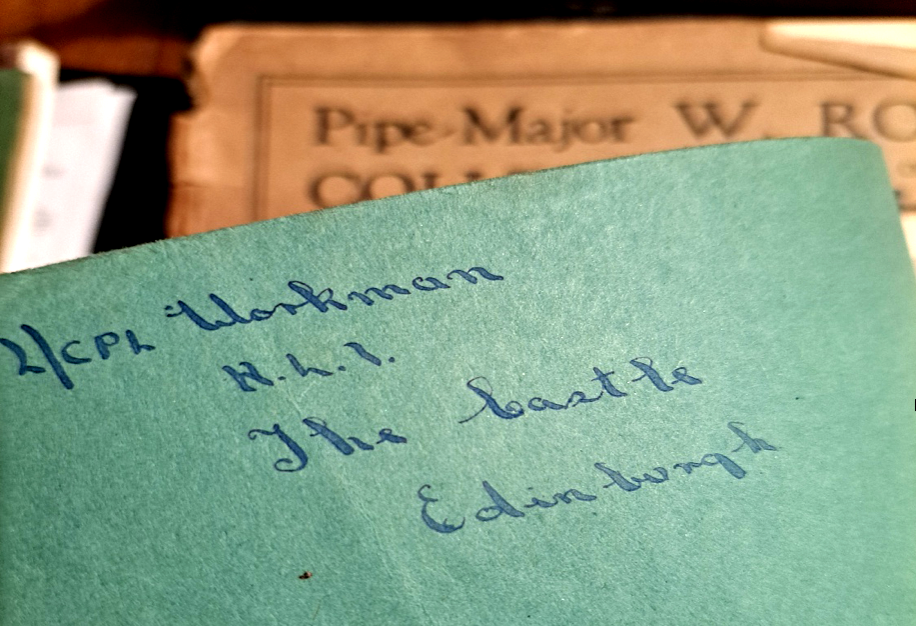 Pipe-Major W. RO
COLL
L/CPL Workman
H.L.I.
The Castle
Edinburgh